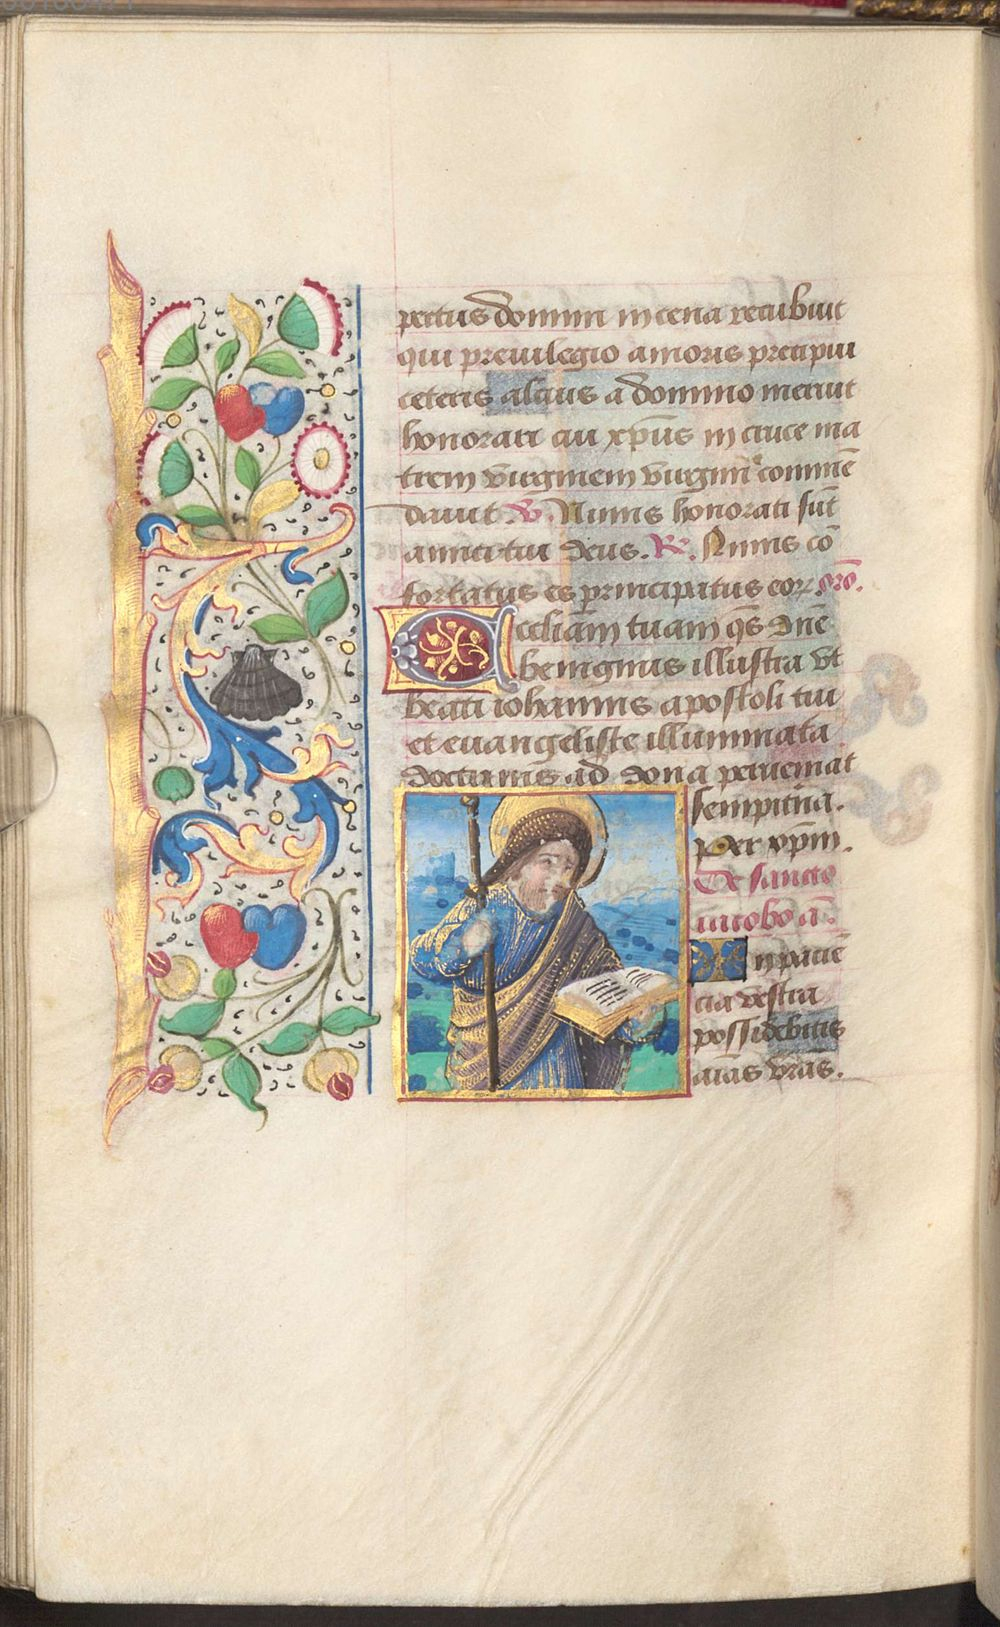 pectus domini in cena recubuit
qui preuilegio amoris precipui
ceteris alcius a domino meruit
honorari cui xp̄us in cruce ma
trem virginem virgini commē
dauit. V. Nimis honorati sūt
amici tui deus. R. Nimis cō
fortatus es principatus eoꝝ. orō.
Ecclīam tuam qs̄ dn̄e
benignus illustra vt
beati iohannis apostoli tui
et euangeliste illuminata
doctrinis ad dona perueniat
sempitna.
Per xp̄m.
De sancto
iacobo a͞.
In paciē
cia vestra
possidebitis
aīas vr̄as.